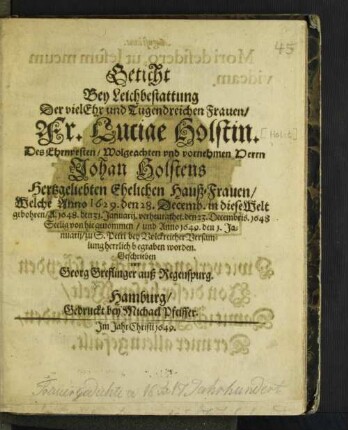 45
Geticht
Bey Leichbestattung
Der vielEhr und Tugendreichen Frauen/
Fr. Luciae Holstin.
Des Ehrnvesten/ Wolgeachten vnd vornehmen Herrn
Johan Holstens
Hertzgeliebten Ehelichen Hauß-Frauen/
Welche Anno 1629. den 28. Decemb. in diese Welt
gebohren/ A. 1648. den 31. Januarij. verheurathet. den 23. Decembris. 1648
Seelig von hie genommen/ und Anno 1649. den 1. Ja-
nuarij/ zu S. Petri bey Volckreicher Versam-
lung herrlich begraben worden.
Geschrieben
von
Georg Greflinger auß Regenspurg.
Hamburg/
Gedruckt bey Michael Pfeiffer.
Im Jahr Christi 1649.
Trauergedichte 16 17 Jahrhundert